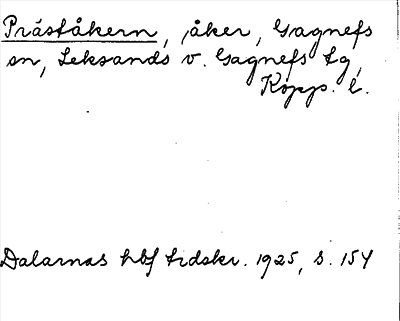 Präståkern, åker, Gagnefs
sn, Leksands o. Gagnefs tg,
Kopp. l.
Dalarnas hbf tidskr. 1925, s. 154